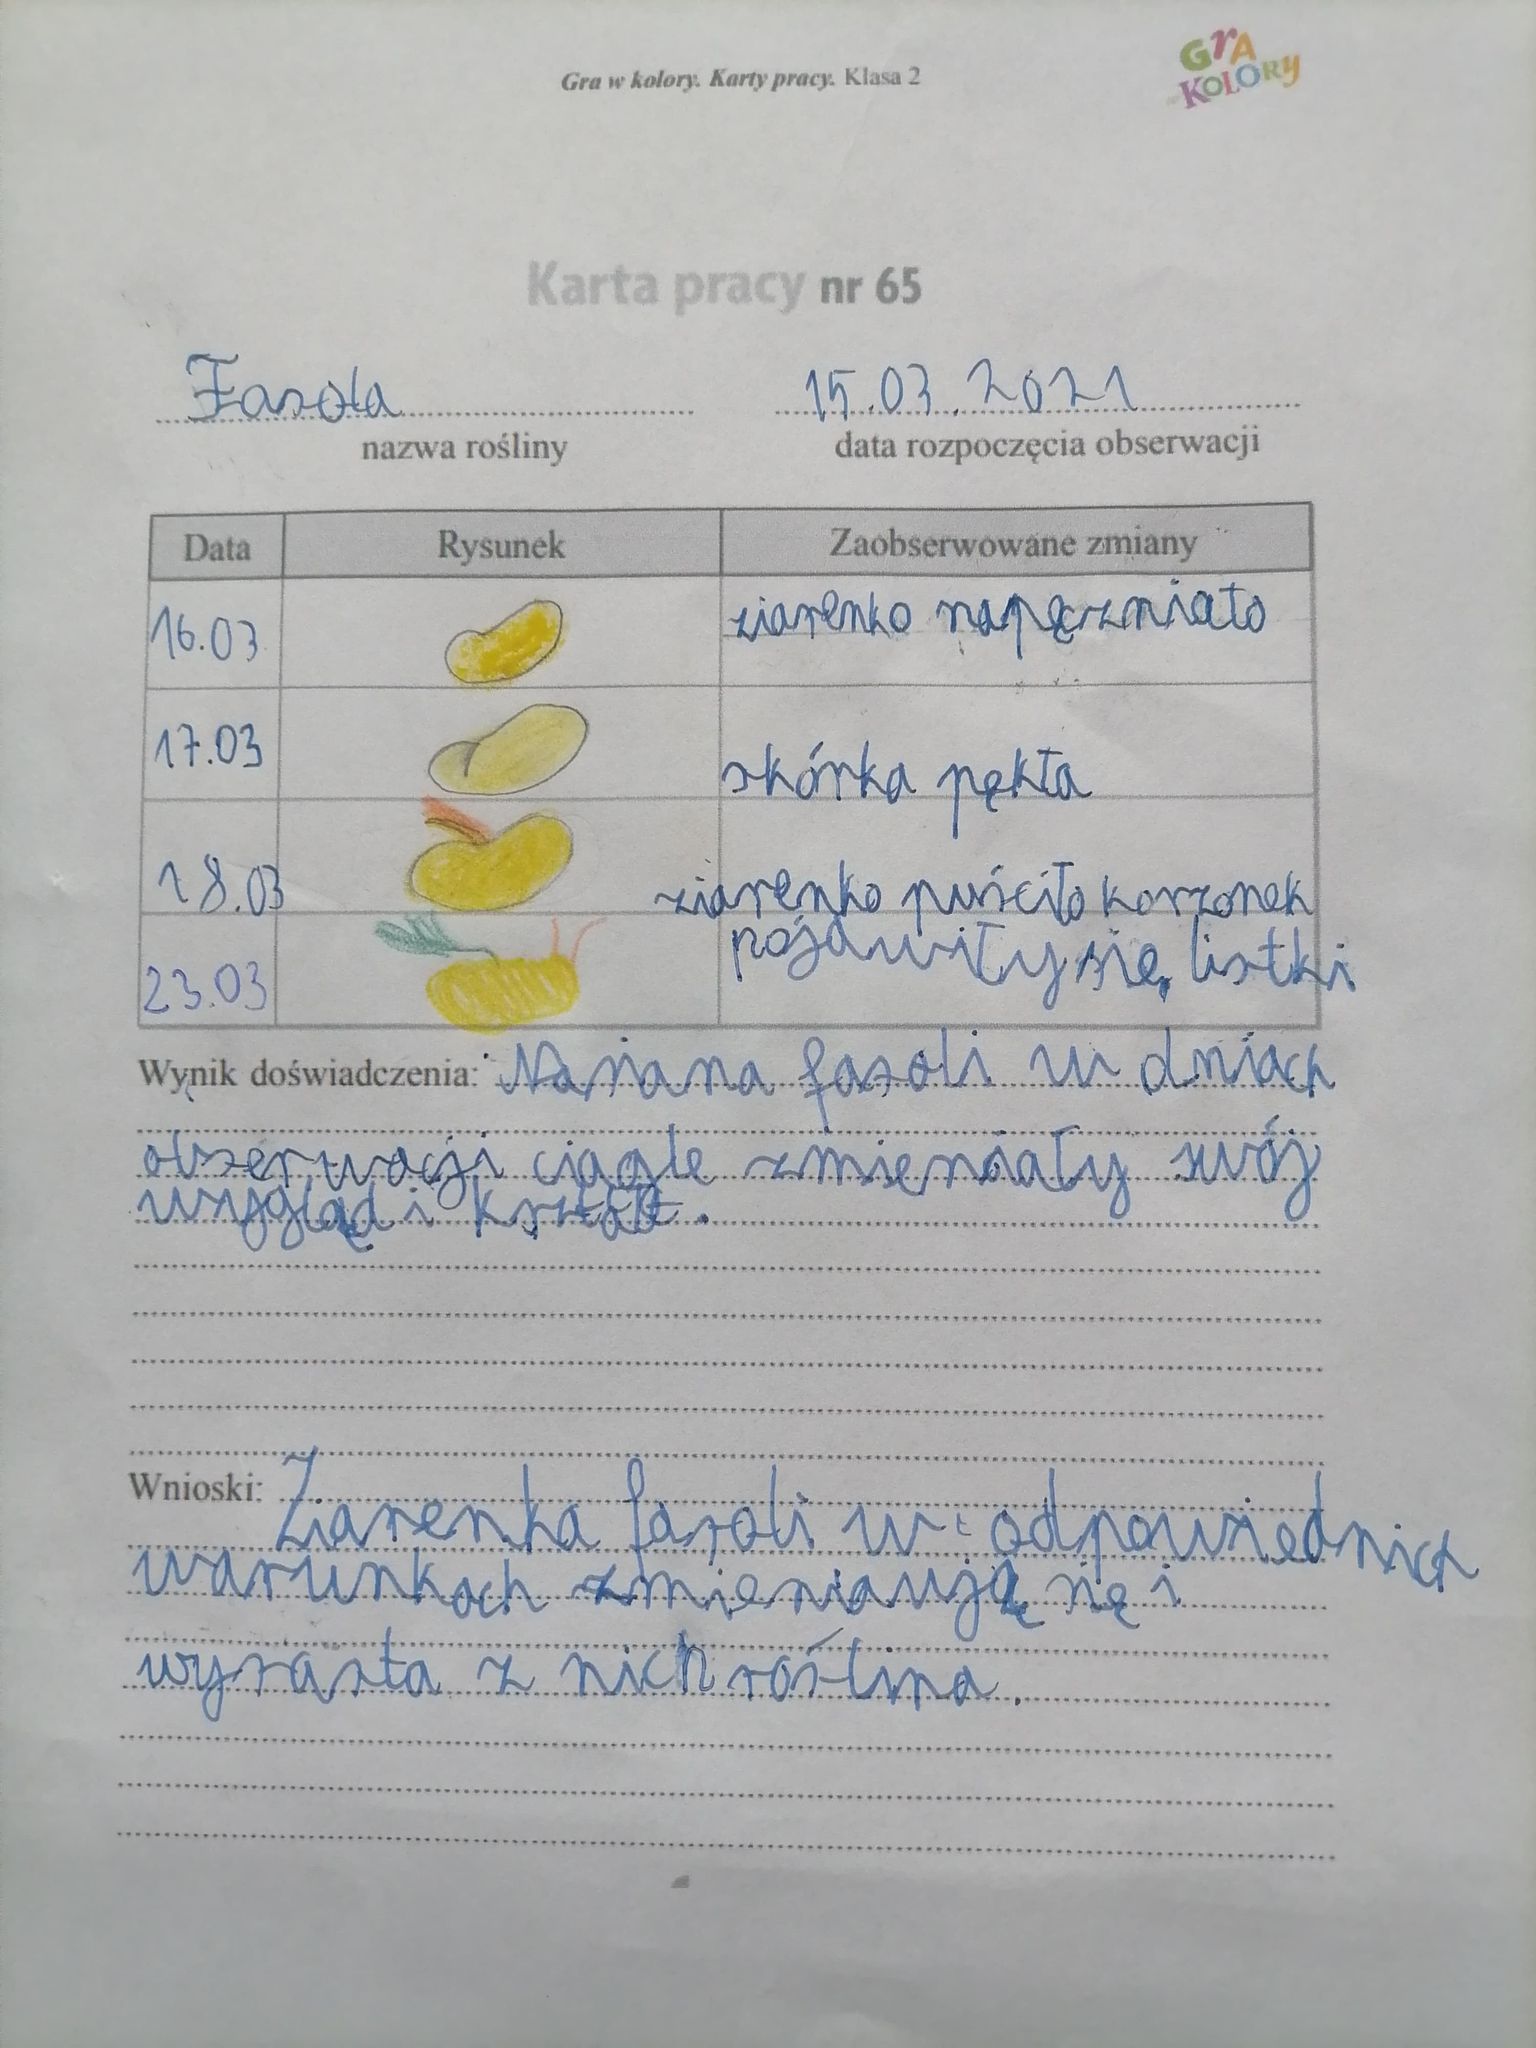 Gra w kolory. Karty pracy. Klasa 2
GrA
KOLORY
Karta pracy nr 65
Fasola
15.03.2021
nazwa rośliny
data rozpoczęcia obserwacji
Data Rysunek Zaobserwowane zmiany
16.03 ziarenko napęczniało
17.03 skórka pękła
18.03 ziarenko puściło korzonek
23.03 pojawiły się listki
Wynik doświadczenia: Nasiana fasoli w dniach
obserwacji ciągle zmieniały swój
wygląd i kształt.
Wnioski:
Ziarenka fasoli w odpowiednich
warunkach zmieniają się i
wyrasta z nich roślina.